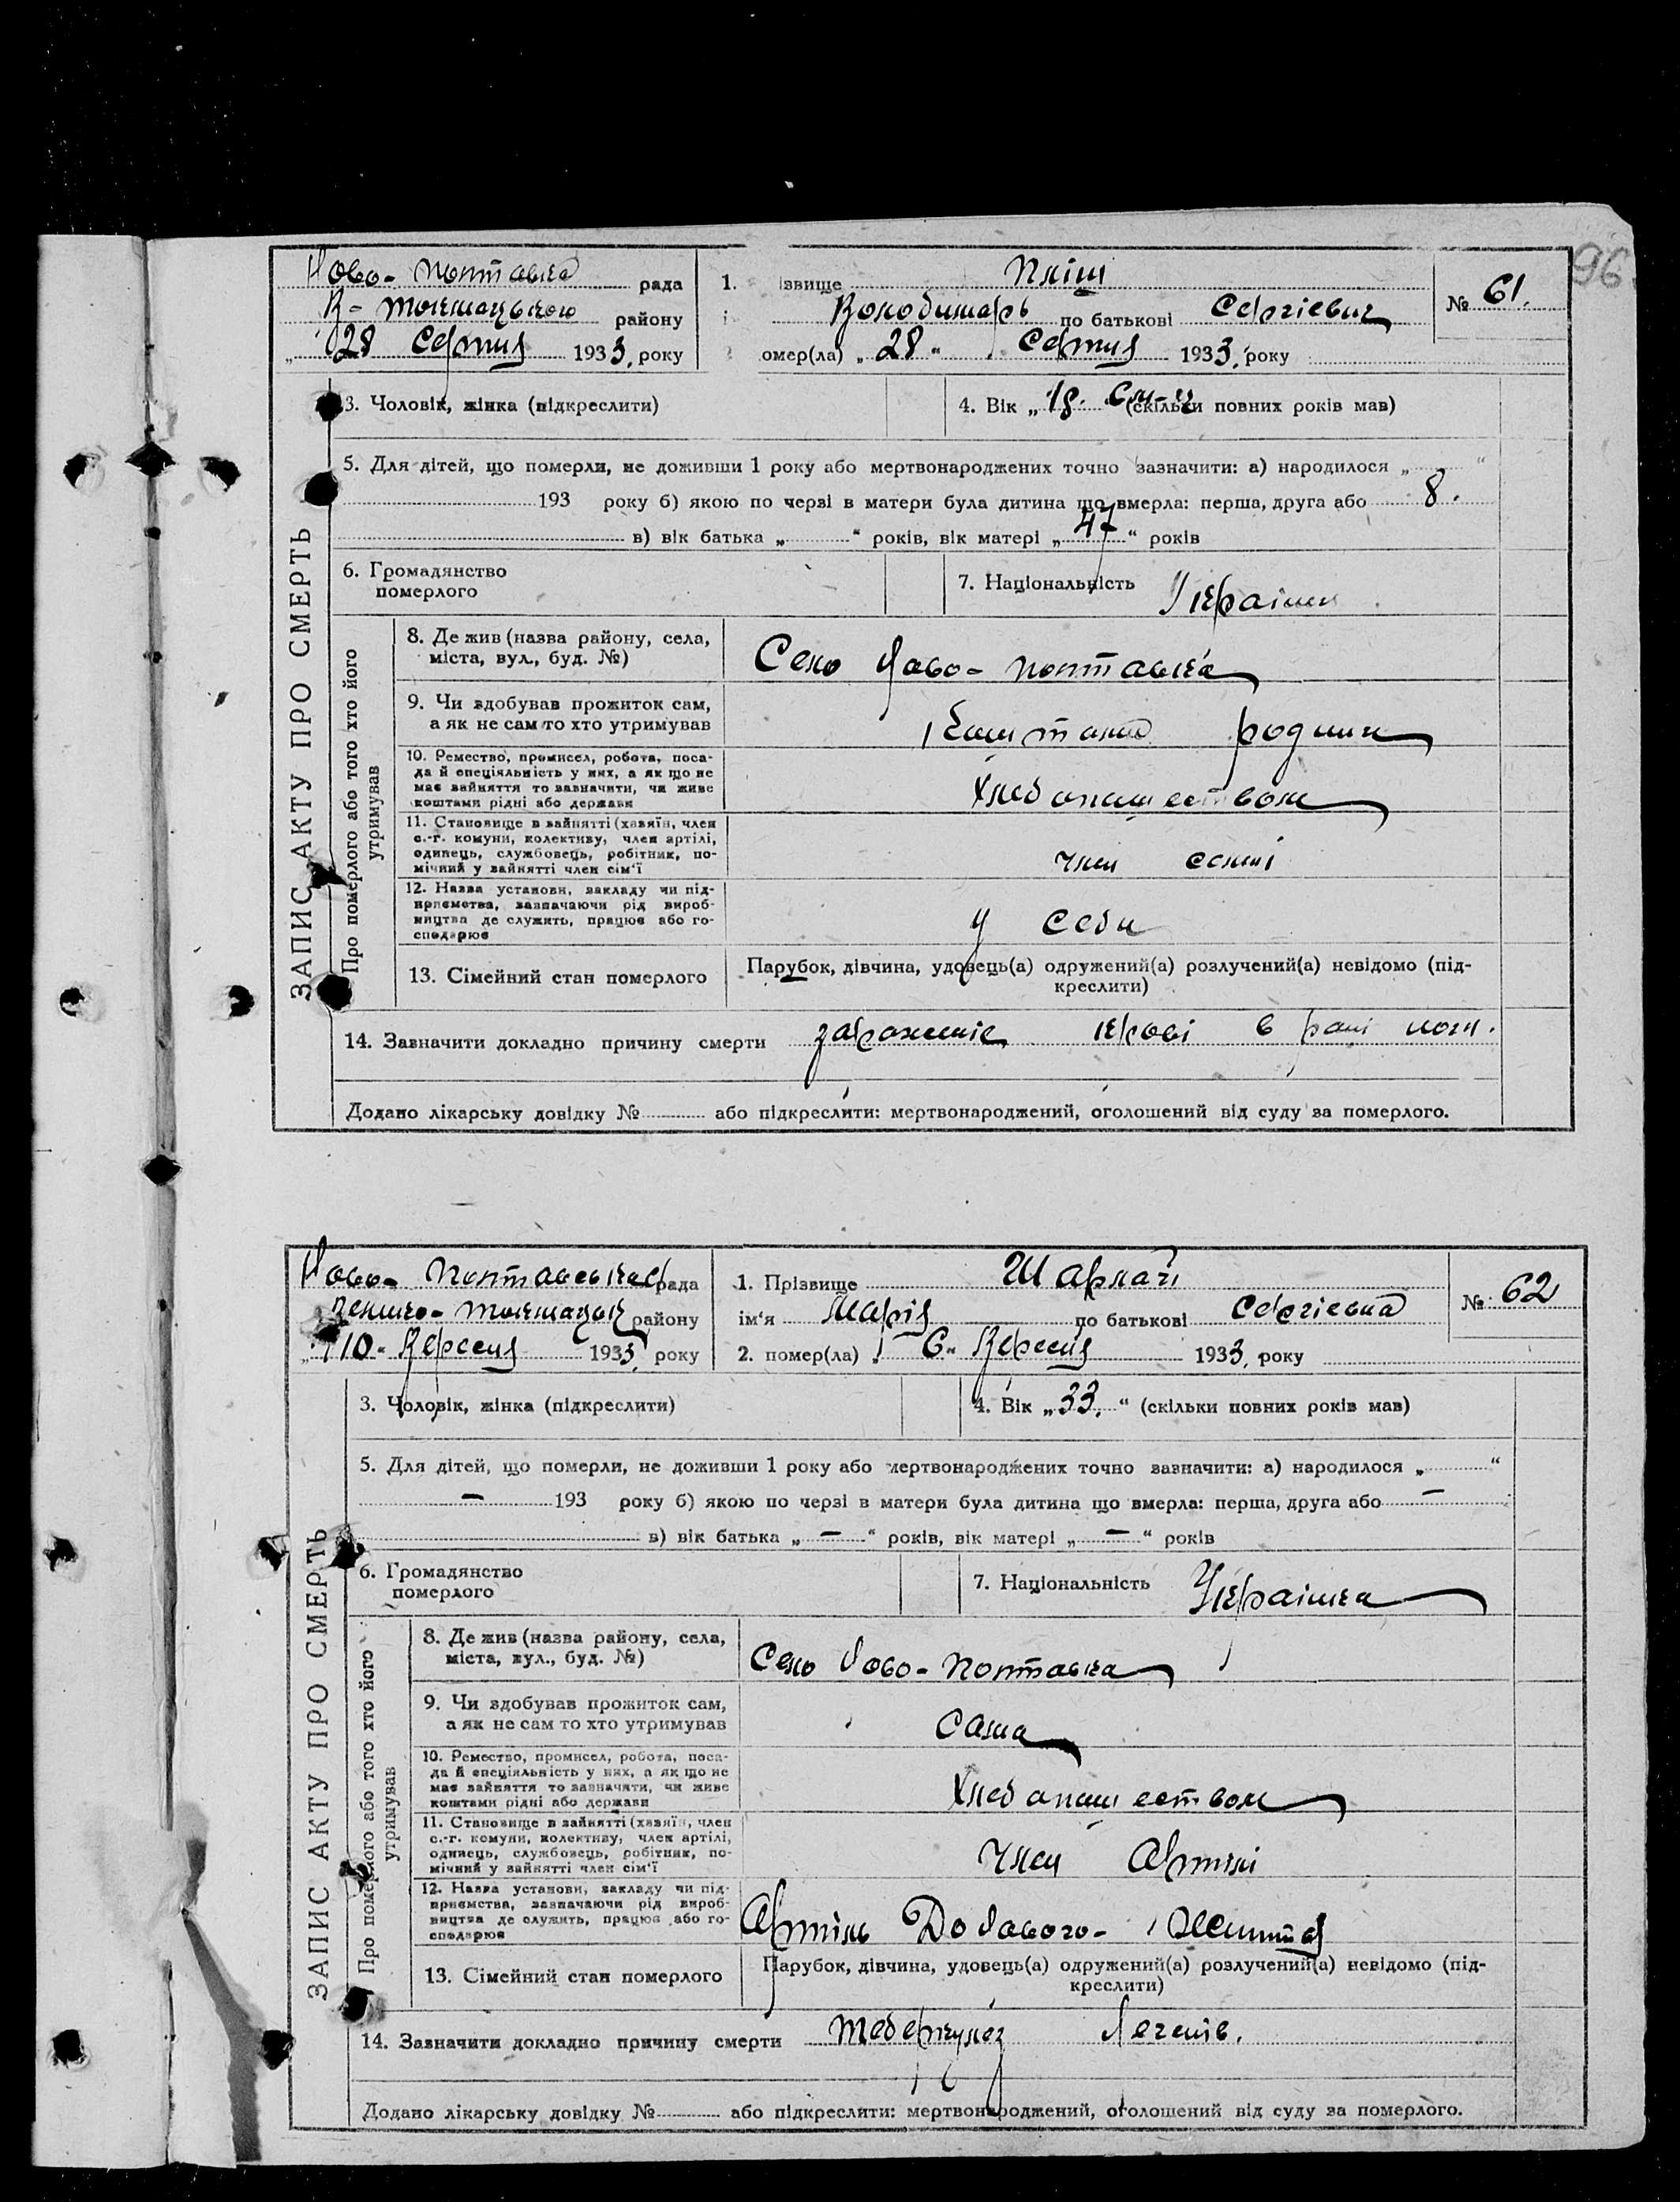 96
ЗАПИС АКТУ ПРО СМЕРТЬ
Ново-Полтавка рада
В-Токмацького району
„28 Серпня 1933. року
1. ізвище Пліш
Володимарь по батькові Сергієвич
омер(ла) „28“ Серпня 1933. року
№ 61.
3. Чоловік, жінка (підкреслити)
4. Вік „18. (скільки повних років мав)
5. Для дітей, що померли, не доживши 1 року або мертвонароджених точно зазначити: а) народилося „ “
193 року б) якою по черзі в матери була дитина що вмерла: перша, друга або 8.
в) вік батька „ “ років, вік матері „47“ років
6. Громадянство
померлого
7. Національність
Про померлого або того хто його
утримував
8. Де жив (назва району, села,
міста, вул., буд. №)
Село Ново-Полтавка
9. Чи здобував прожиток сам,
а як не сам то хто утримував
родини
10. Ремество, промисел, робота, поса-
да й спеціяльність у них, а як що не
має зайняття то зазначити, чи живе
коштами рідні або держави
Хлебопашеством
11. Становище в зайнятті (хазяїн, член
с.-г. комуни, колективу, член артілі,
одинець, службовець, робітник, по-
мічний у зайнятті член сім'ї
член семї
12. Назва установи, закладу чи під-
приємства, зазначаючи рід вироб-
ництва де служить, працює або го-
сподарює
у себи
13. Сімейний стан померлого
Парубок, дівчина, удовець(а) одружений(а) розлучений(а) невідомо (під-
креслити)
14. Зазначити докладно причину смерти зараженіе крові в рані ноги.
Додано лікарську довідку № або підкреслити: мертвонароджений, оголошений від суду за померлого.
ЗАПИС АКТУ ПРО СМЕРТЬ
Ново-Полтавська рада
Велико-Токмацьк району
„10“ Вересня 1933 року
1. Прізвище Шарлай
ім'я Марія по батькові Сергіевна
2. помер(ла) „6“ Вересня 1933. року
№ 62
3. Чоловік, жінка (підкреслити)
4. Вік „33.“ (скільки повних років мав)
5. Для дітей, що померли, не доживши 1 року або мертвонароджених точно зазначити: а) народилося „ “
– 193 року б) якою по черзі в матери була дитина що вмерла: перша, друга або –
в) вік батька „ – “ років, вік матері „ – “ років
6. Громадянство
померлого
7. Національність Українка
Про померлого або того хто його
утримував
8. Де жив (назва району, села,
міста, вул., буд. №)
Село Ново-Полтавка
9. Чи здобував прожиток сам,
а як не сам то хто утримував
Сама
10. Ремество, промисел, робота, поса-
да й спеціяльність у них, а як що не
має зайняття то зазначити, чи живе
коштами рідні або держави
Хлебопашеством
11. Становище в зайнятті (хазяїн, член
с.-г. комуни, колективу, член артілі,
одинець, службовець, робітник, по-
мічний у зайнятті член сім'ї
Член Артілі
12. Назва установи, закладу чи під-
приємства, зазначаючи рід вироб-
ництва де служить, працює або го-
сподарює
Артіль До Нового-Життя
13. Сімейний стан померлого
Парубок, дівчина, удовець(а) одружений(а) розлучений(а) невідомо (під-
креслити)
14. Зазначити докладно причину смерти Теберкулез Легенів.
Додано лікарську довідку № або підкреслити: мертвонароджений, оголошений від суду за померлого.